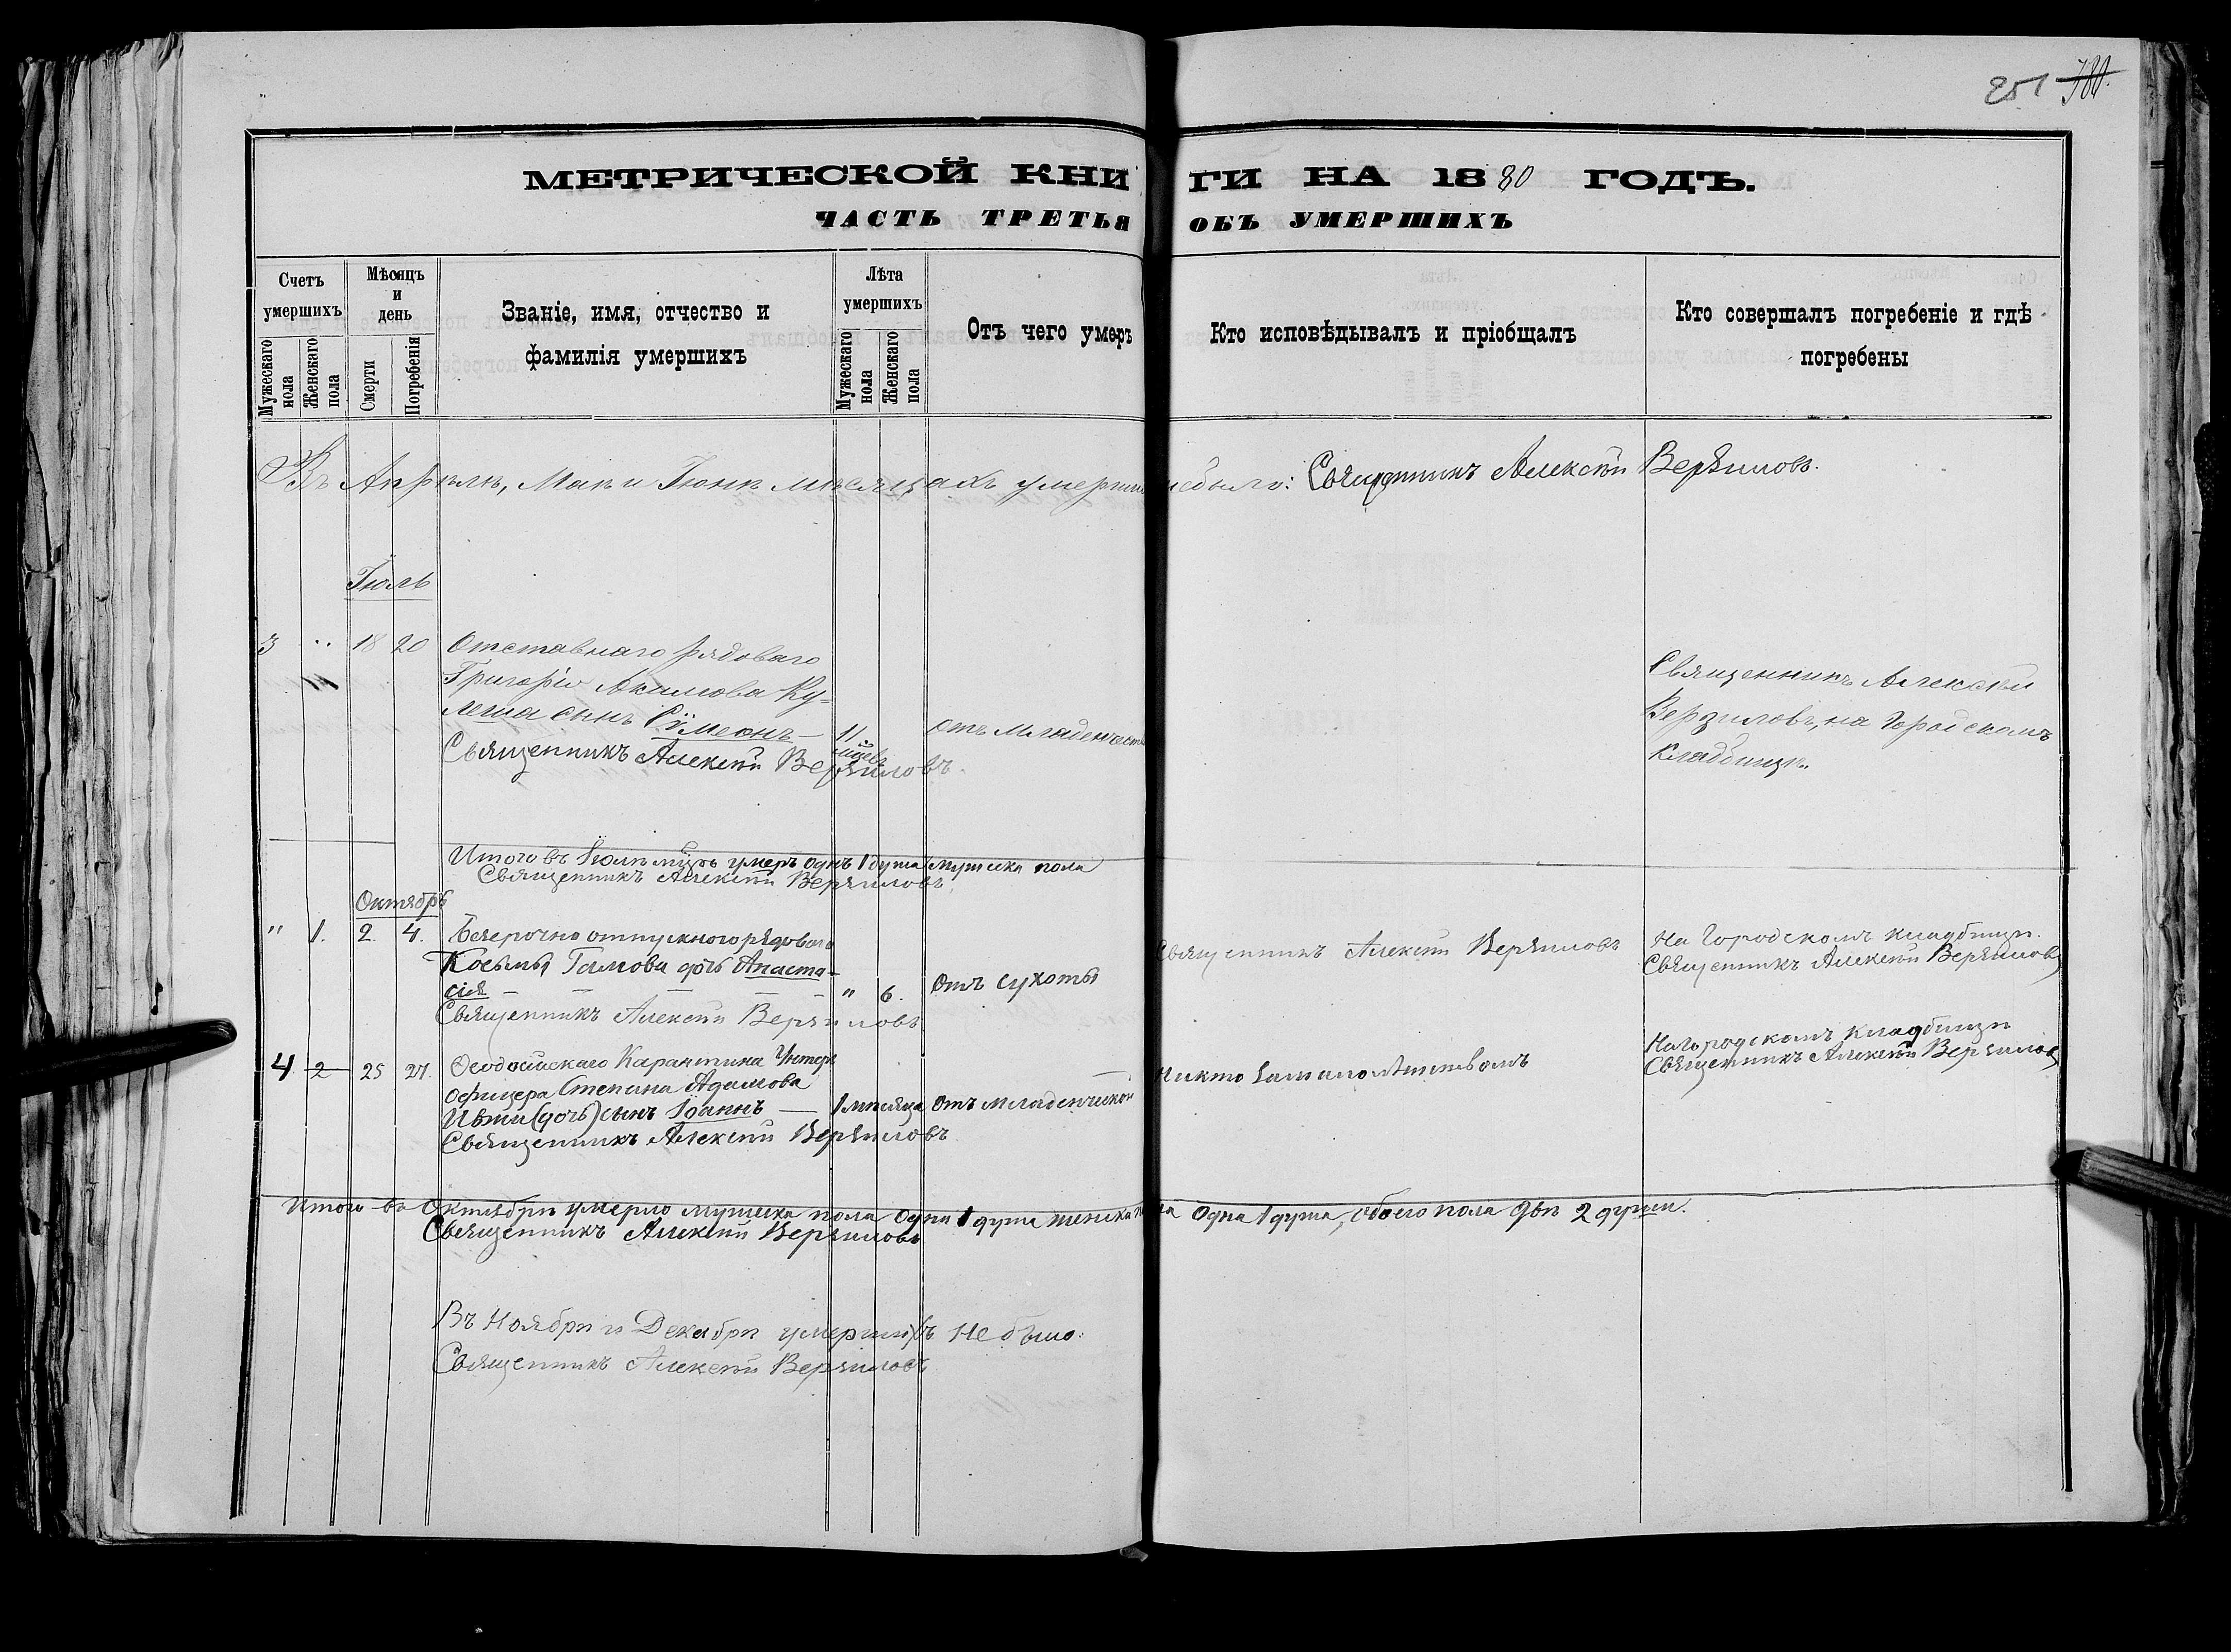 251 780.
МЕТРИЧЕСКОЙ КНИГИ НА 1880 ГОДЪ.
ЧАСТЬ ТРЕТЬЯ ОБЪ УМЕРШИХЪ
Счетъ умершихъ
Мужескаго пола
Женскаго пола
Мѣсяцъ и день
Смерти
Погребенія
Званіе, имя, отчество и фамилія умершихъ
Лѣта умершихъ
Мужескаго пола
Женскаго пола
Отъ чего умеръ
Кто исповѣдывалъ и пріобщалъ
Кто совершалъ погребеніе и гдѣ погребены
Въ Апрѣлѣ, Маѣ и Іюнѣ мѣсяцахъ умершихъ небыло: Священникъ Алексѣй Верзиловъ.
Іюль
3 " 18 20 Отставнаго рядоваго
Григорія Акимова Ку=
леша сынъ Сѵмеонъ — 11 мцевъ отъ младенчест
Священникъ Алексѣй Верзиловъ.
Священникъ Алексѣй
Верзиловъ, на Городскомъ
кладбищѣ.
Итого въ Іюлѣ мцѣ умеръ однъ 1 душа мужеска пола
Священникъ Алексѣй Верзиловъ
Октябрь
" 1. 2 4. Безсрочно отпускного рядового
Косьмы Гамова дочь Анаста-
сія — — — — " 6. Отъ сухоты
Священникъ Алексѣй Верзиловъ
Священникъ Алексѣй Верзиловъ
На Городскомъ кладбищѣ.
Священникъ Алексѣй Верзиловъ
4 2 25 27. Ѳеодосійскаго Карантина Унтеръ
офицера Степана Адамова
(дочь) сынъ Іоаннъ — 1 мѣсяца Отъ младенческой
Священникъ Алексѣй Верзиловъ
Никто за малолѣтствомъ
На городскомъ кладбищѣ
Священникъ Алексѣй Верзиловъ
Итого въ Октябрѣ умерло мужеска пола одна 1 душа женска пола одна 1 душа, обоего пола двѣ 2 души.
Священникъ Алексѣй Верзиловъ
Въ Ноябрѣ и Декабрѣ умершихъ не было:
Священникъ Алексѣй Верзиловъ